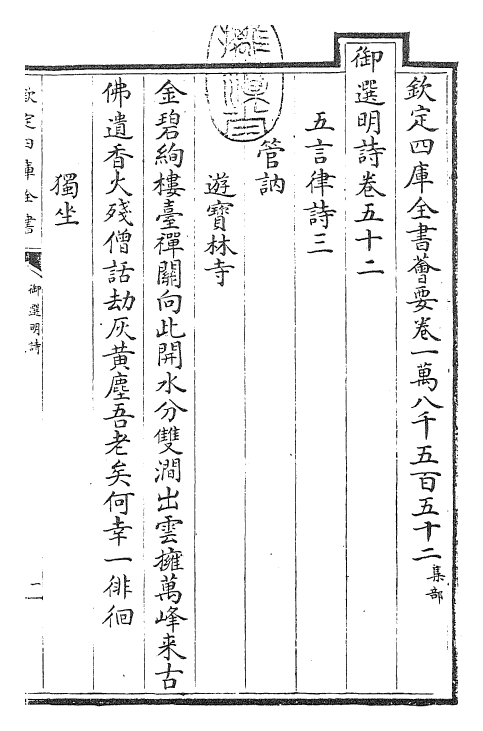 欽定四庫全書薈要卷一萬八千五百五十二集部
御選明詩卷五十二
五言律詩三
管訥
遊寶林寺
金碧絢樓臺禪關向此開水分雙澗出雲擁萬峰来古
佛遺香火殘僧話劫灰黃塵吾老矣何幸一徘徊
獨坐
欽定四庫全書
御選明詩